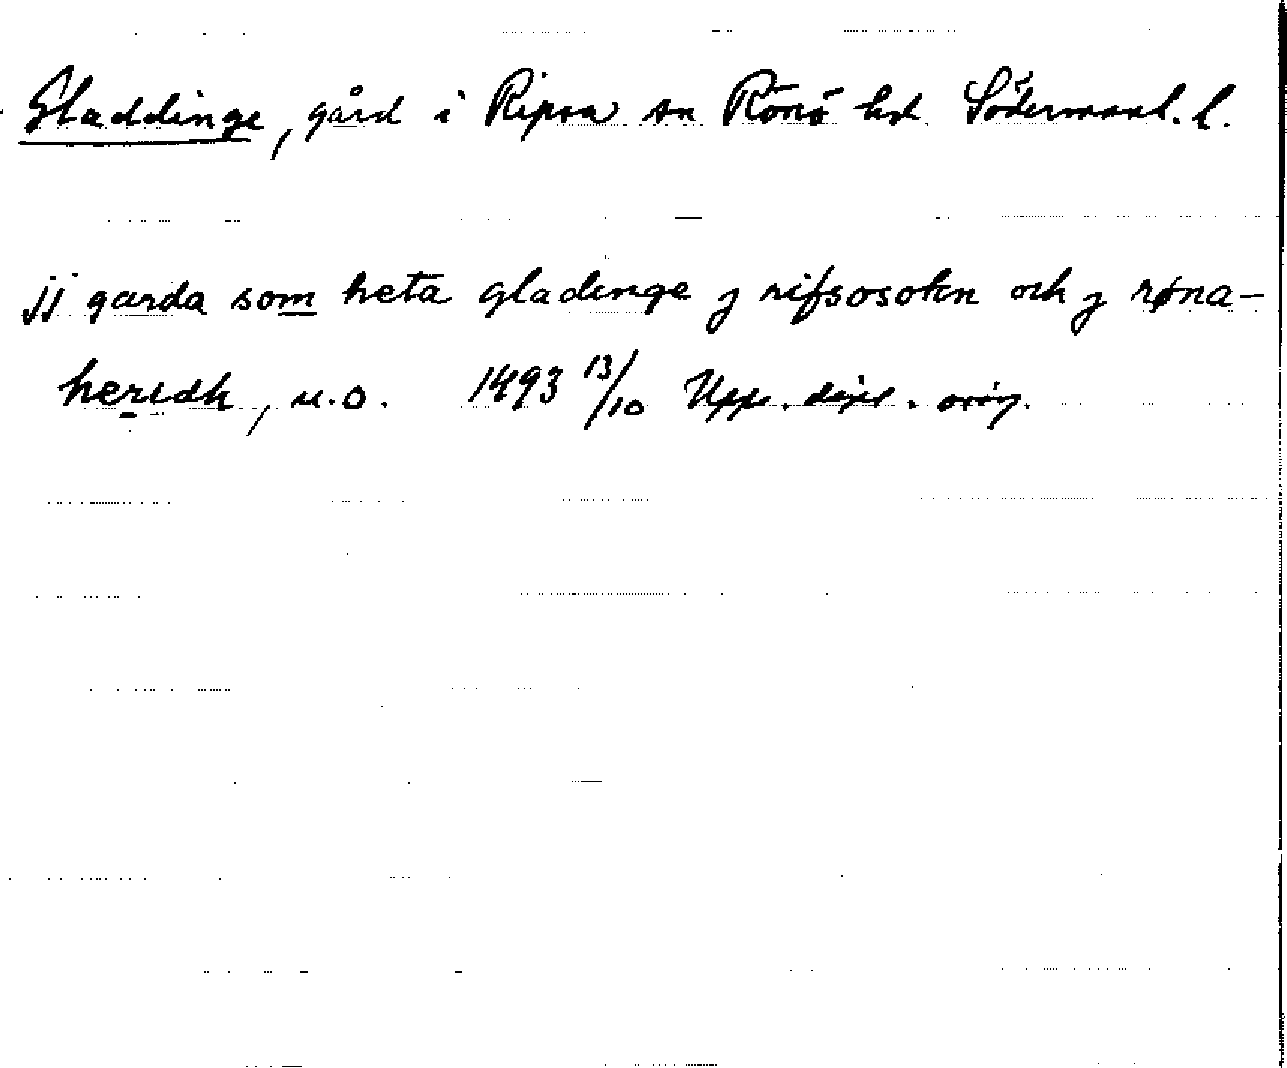 Gladdinge, gård i Ripsa sn Rönö hd Södermanl. l.
jj garda som heta gladinge j rifsosokn och j røna-
heredh, u.o. 1493 13/10 Upps. dipl. orig.